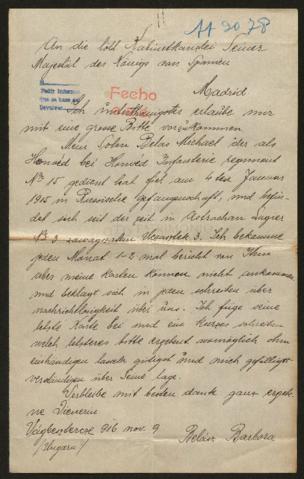 An die löbl Kabinetskanzlei Seiner
Majestät des Königs von Spanien
Madrid
Fecho
Ich unterthänigstes erlaube mir
mit eine grosse Bitte vorzukommen
Mein Sohn Belás Michael der als
Honvéd bei Honvéd Infanterie regiment
No 15 gedient hat fiel am 4ten Januar
1915 in Russische gefangenschaft, und befin-
det sich seit der zeit in Astrachan Lager
No 3 Ucsastok 3. Ich bekomme
jeden Monat 1-2 mal bericht von Ihm
aber meine Karten können nicht ankommen
und beklagt sich in jeden schreiben über
nachrichtlosigkeit über uns. Ich füge seine
letzte Karte bei und ein kurzes schreiben
welch letzteres bitte ergebenst womöglich ihm
einhändigen lassen und mich gefälligst
verständigen über Seine Lage.
Verbleibe mit besten dank ganz ergebe-
ne Dienerin
916 nov. 9
(Ungarn) Barbara